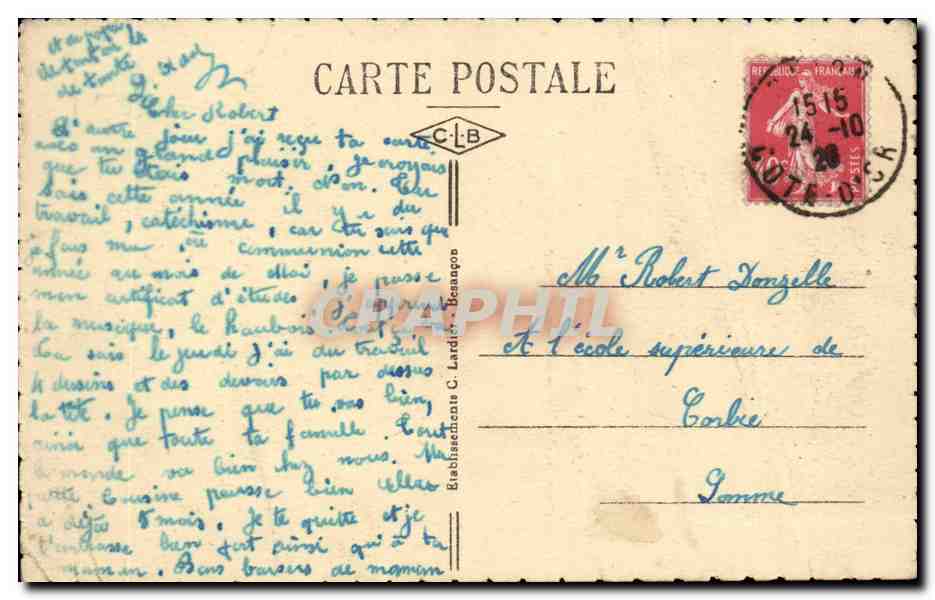 CARTE POSTALE
C.L.B
REPUBLIQUE FRANÇAISE
POSTES
15 15
24 -10
26
COTE-D'OR
Cher Robert
L'autre jour j'ai reçu ta carte
avec un grand plaisir, je croyais
que tu étais mort. Bon. Tu
sais cette année il y a du
travail, catéchisme, car tu sais que
je fais ma 1ère communion cette
année au mois de Mai, je passe
mon certificat d'études, j'apprends
la musique, le hautbois
Tu sais le jeudi j'ai du travail
4 dessins et des devoirs par dessus
la tête. Je pense que tu vas bien,
ainsi que toute ta famille. Tout
le monde va bien chez nous. Ma
petite cousine pousse bien elle
a déjà 8 mois. Je te quitte et je
t'embrasse bien fort ainsi qu'à ta
maman. Bons baisers de maman
et de papa
de tonton
de tante
Etablissements C. Lardier - Besançon
Mr Robert Donzelle
A l'école supérieure de
Corbie
Somme
CPAPHIL